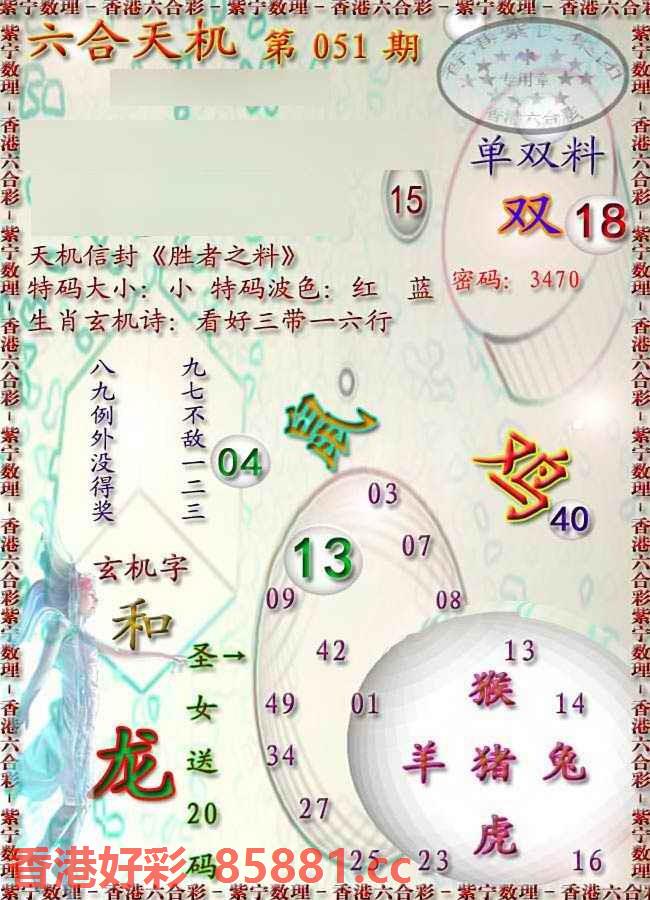 紫宁数理－香港六合彩－紫宁数理－香港六合彩－紫宁数理－香港六合彩
六合天机 第 051 期
专用章
香港六合彩
单双料
双 18
15
天机信封《胜者之料》
特码大小：小 特码波色：红 蓝
密码：3470
生肖玄机诗：看好三带一六行
八九例外没得奖
九七不敌一二三
04
鼠
鸡
40
03
13
07
玄机字
和
09
08
圣女送20码
→
42
13
猴
49
01
14
龙
羊 猪 兔
34
27
虎
25
23
16
香港好彩 85881.cc
紫宁数理－香港六合彩－紫宁数理－香港六合彩－紫宁数理－香港六合彩